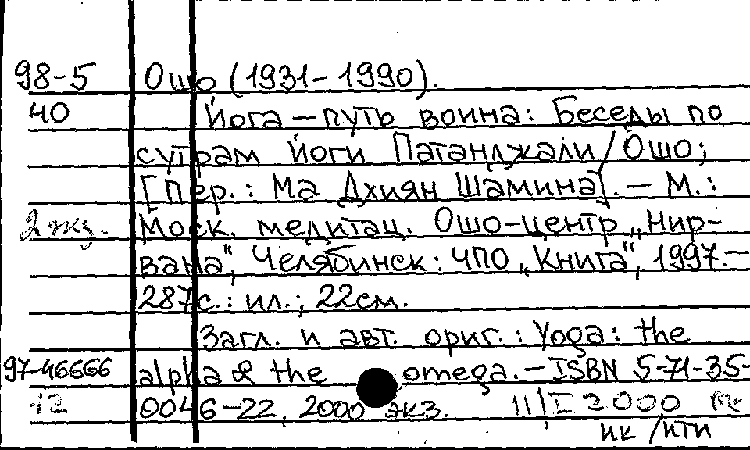 98-5 Ошо (1931-1990).
40 Йога – путь воина: Беседы по
сутрам йоги Патанджали / Ошо;
[Пер.: Ма Дхиян Шамина]. – М.:
2 экз. Моск. медитац. Ошо-центр „Нир-
вана“, Челябинск: ЧПО „Книга“, 1997.–
287с.: ил.; 22см.
Загл. и авт. ориг.: Yoga: the
97-46666 alpha & the omega. – ISBN 5-71-35-
12 0046-22, 2000 экз. III I 2000
ик / ити